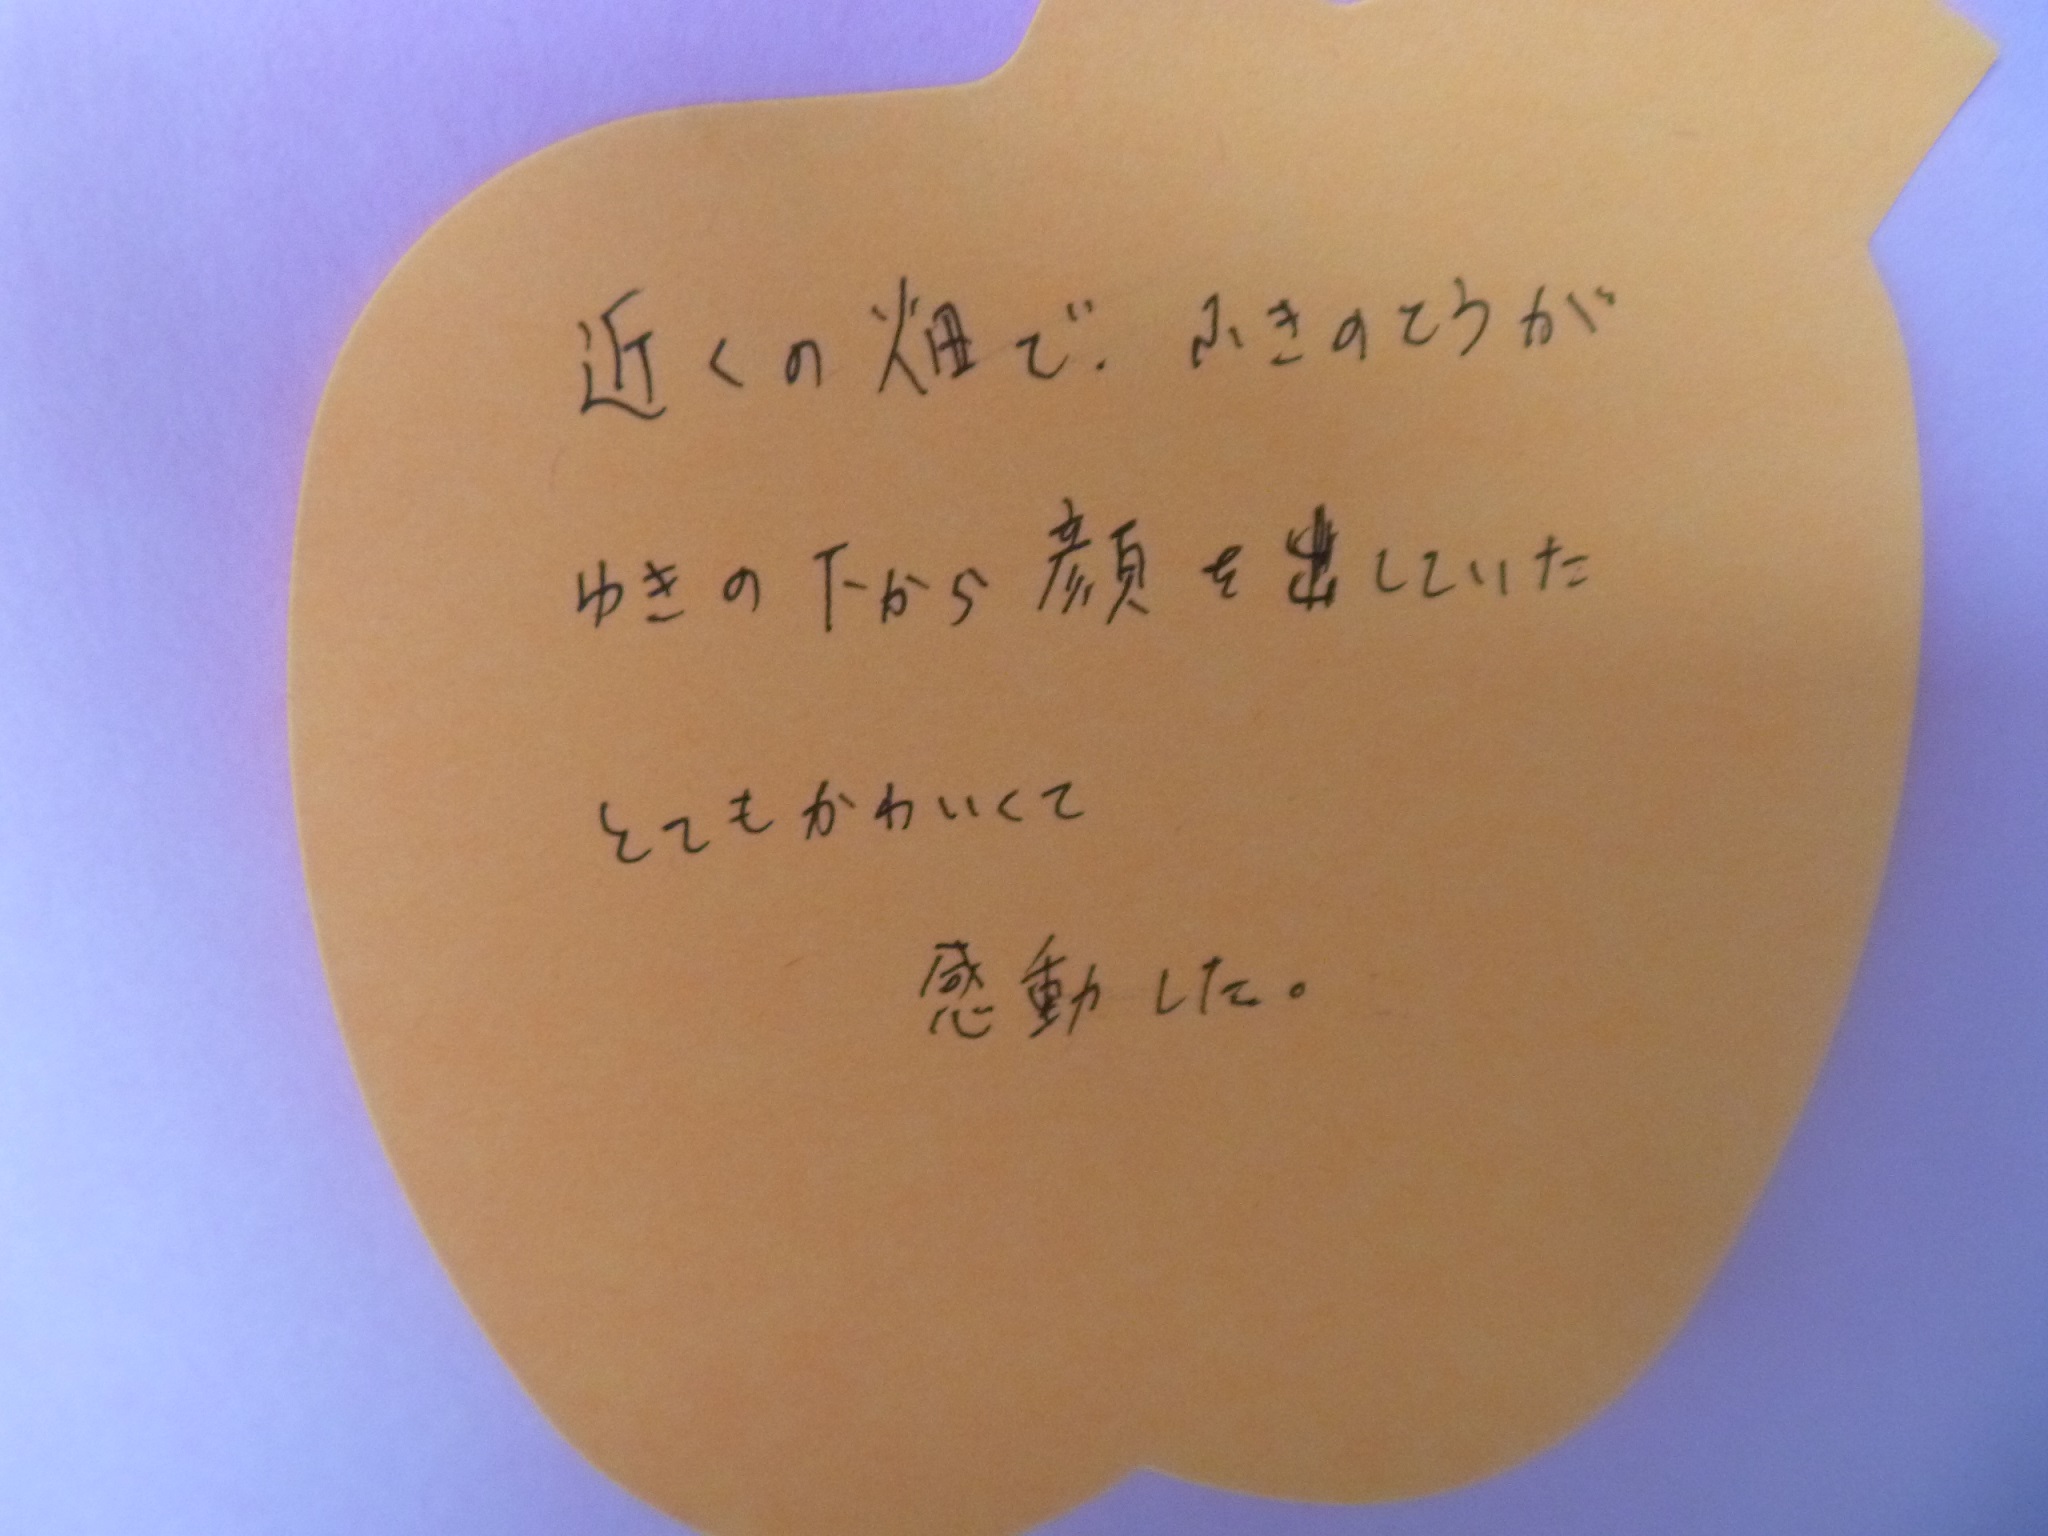 近くの畑で、ふきのとうが
ゆきの下から顔を出していた
とてもかわいくて
感動した。